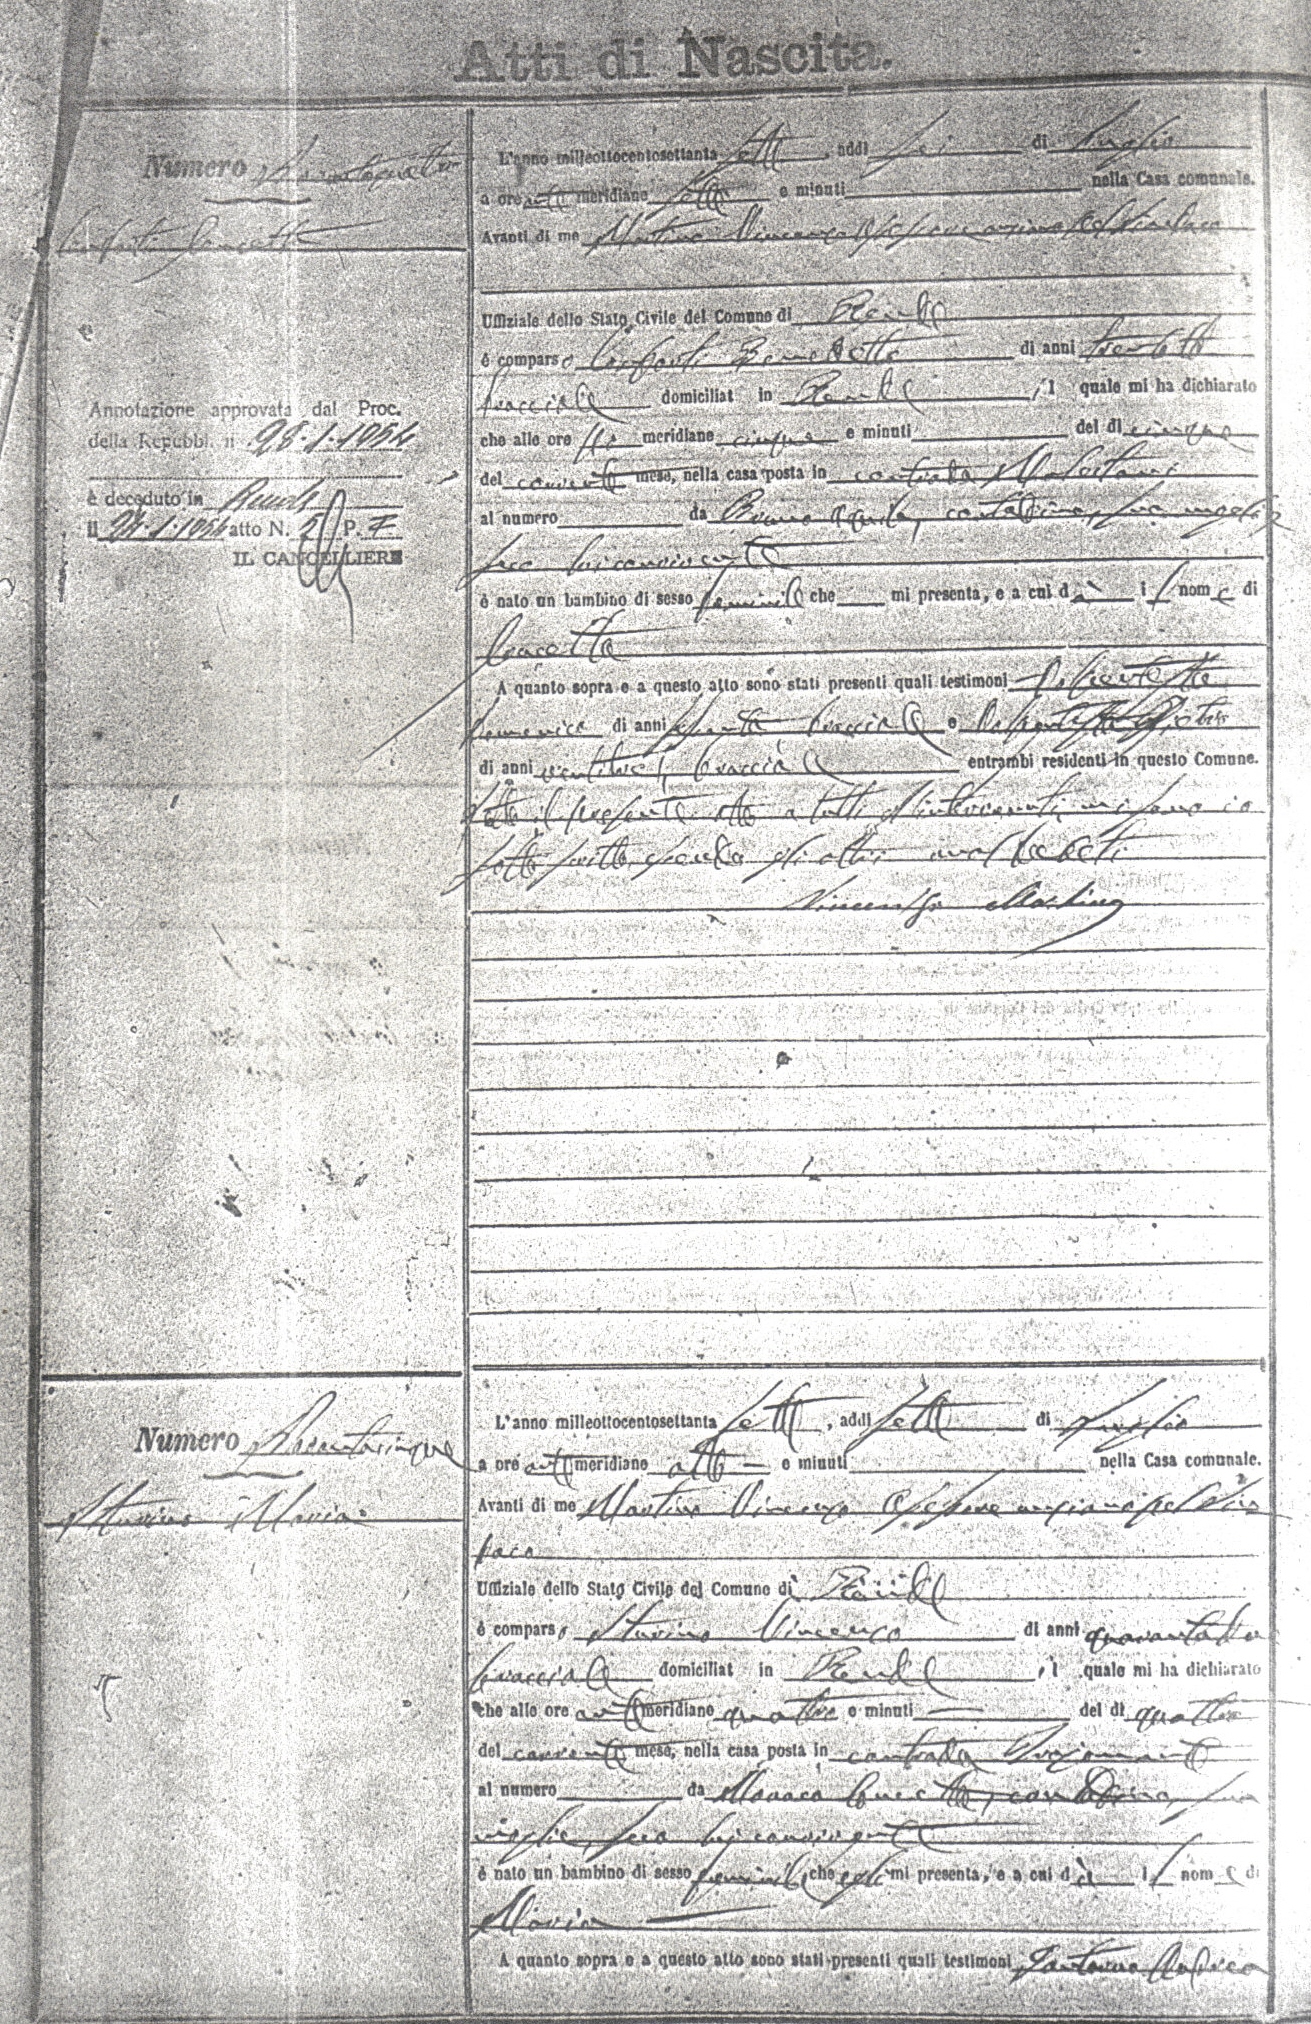 Atti di Nascita.
Numero
L'anno milleottocentosettanta sette, addì sei di Luglio
a ore ante meridiane sette e minuti nella Casa comunale.
Avanti di me Martino Vincenzo Assessore anziano pel Sindaco
Uffiziale dello Stato Civile del Comune di Rende
è comparso Conforti Benedetto di anni
bracciale domiciliat in Rende, il quale mi ha dichiarato
che alle ore meridiane cinque e minuti del dì cinque
del corrente mese, nella casa posta in contrada
al numero da Bruno Aquila, contadina, sua moglie
seco lui convivente
è nato un bambino di sesso feminile che mi presenta, e a cui dà il nome di
Concetta
A quanto sopra e a questo atto sono stati presenti quali testimoni
Domenico di anni bracciale e
di anni bracciale entrambi residenti in questo Comune.
Letto il presente atto a tutti gl'intervenuti, mi sono io
sottoscritto essendo gli altri analfabeti
Vincenzo Martino
Conforti Concetta
Annotazione approvata dal Proc.
della Repubbl. il 28.1.1954
è deceduto in Rende
il atto N. P.
IL CANCELLIERE
Numero Novantacinque
L'anno milleottocentosettanta sette, addì sette di Luglio
a ore ante meridiane otto e minuti nella Casa comunale.
Avanti di me Martino Vincenzo Assessore anziano pel Sin
daco
Uffiziale dello Stato Civile del Comune di Rende
è comparso Sturino Vincenzo di anni
bracciale domiciliat in Rende, il quale mi ha dichiarato
che alle ore ante meridiane quattro e minuti del dì quattro
del corrente mese, nella casa posta in contrada
al numero da Monaco Concetta, contadina, sua
moglie, seco lui convivente
è nato un bambino di sesso feminile che egli mi presenta, e a cui dà il nome di
Maria
A quanto sopra e a questo atto sono stati presenti quali testimoni Andrea
Sturino Maria